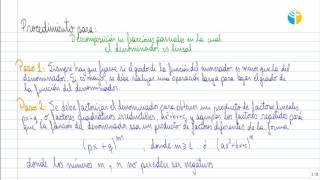 Procedimiento para:
Descomposición en fracciones parciales en la cual
el denominador es lineal
Paso 1: Siempre hay que fijarse si el grado de la función del numerador es mayor que la del
denominador. Si es mayor, se debe realizar una operación larga para bajar el grado de
la función del denominador.
Paso 2: Se debe factorizar el denominador para obtener un producto de factores lineales,
px+q, o factores cuadráticos irreducibles, ax²+bx+c, y agrupar los factores repetidos para
que la función del denominador sea un producto de factores diferentes de la forma
(px + q)ᵐ, donde m≥1 ó (ax²+bx+c)ⁿ
donde los números m y n no pueden ser negativos